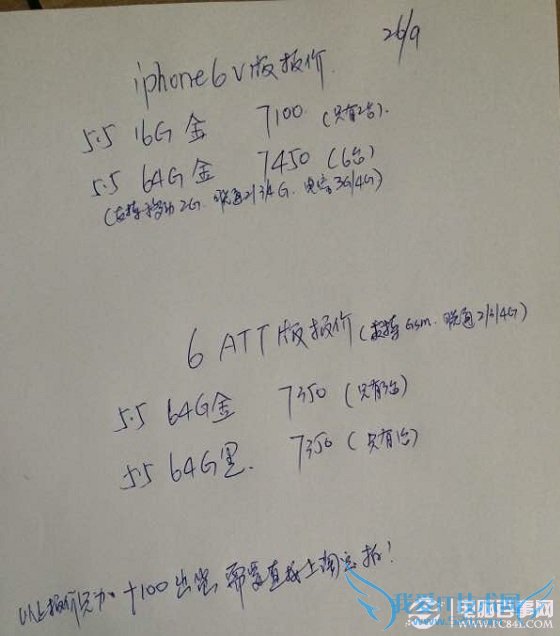 26/9
iphone6 V版报价
5.5 16G 金 7100 (只有2台).
5.5 64G 金 7450 (6台)
(支持移动2G. 联通2/3/4G. 电信3G/4G)
6 ATT版报价 (支持Gsm. 联通2/3/4G)
5.5 64G金 7350 (只有3台)
5.5 64G黑. 7350 (只有1台)
以上报价只加+100出货, 需要直接上淘宝拍!
我爱IT技术网
电脑百事网
WWW.PC841.COM